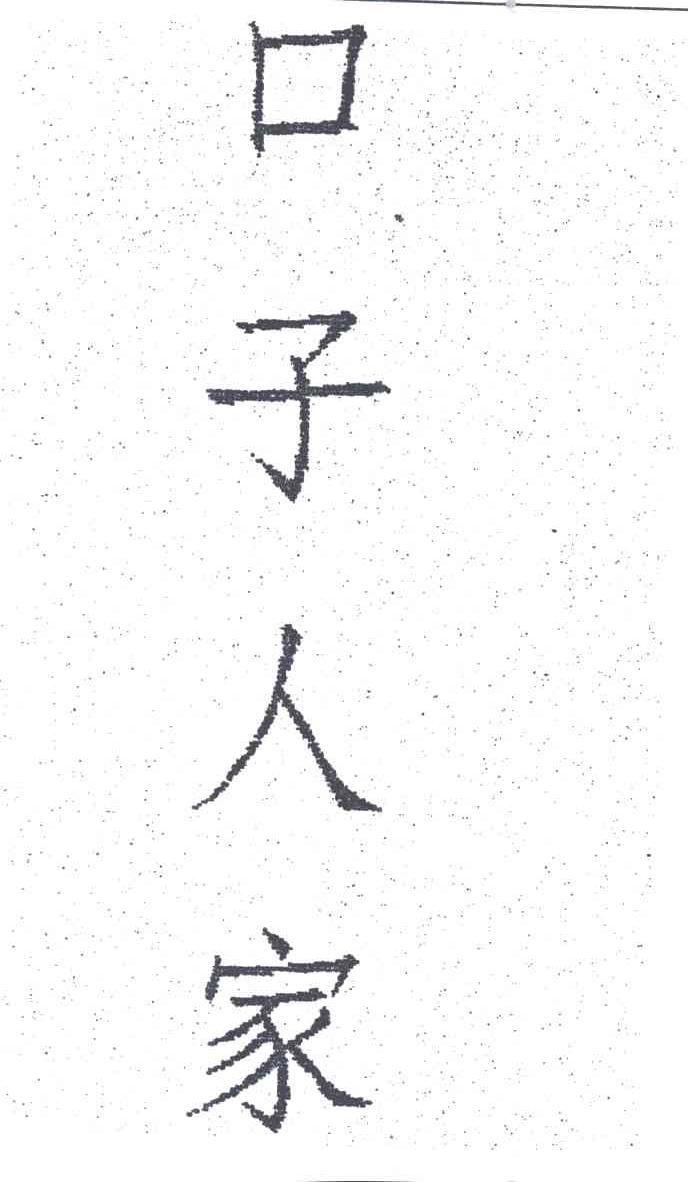 口子人家